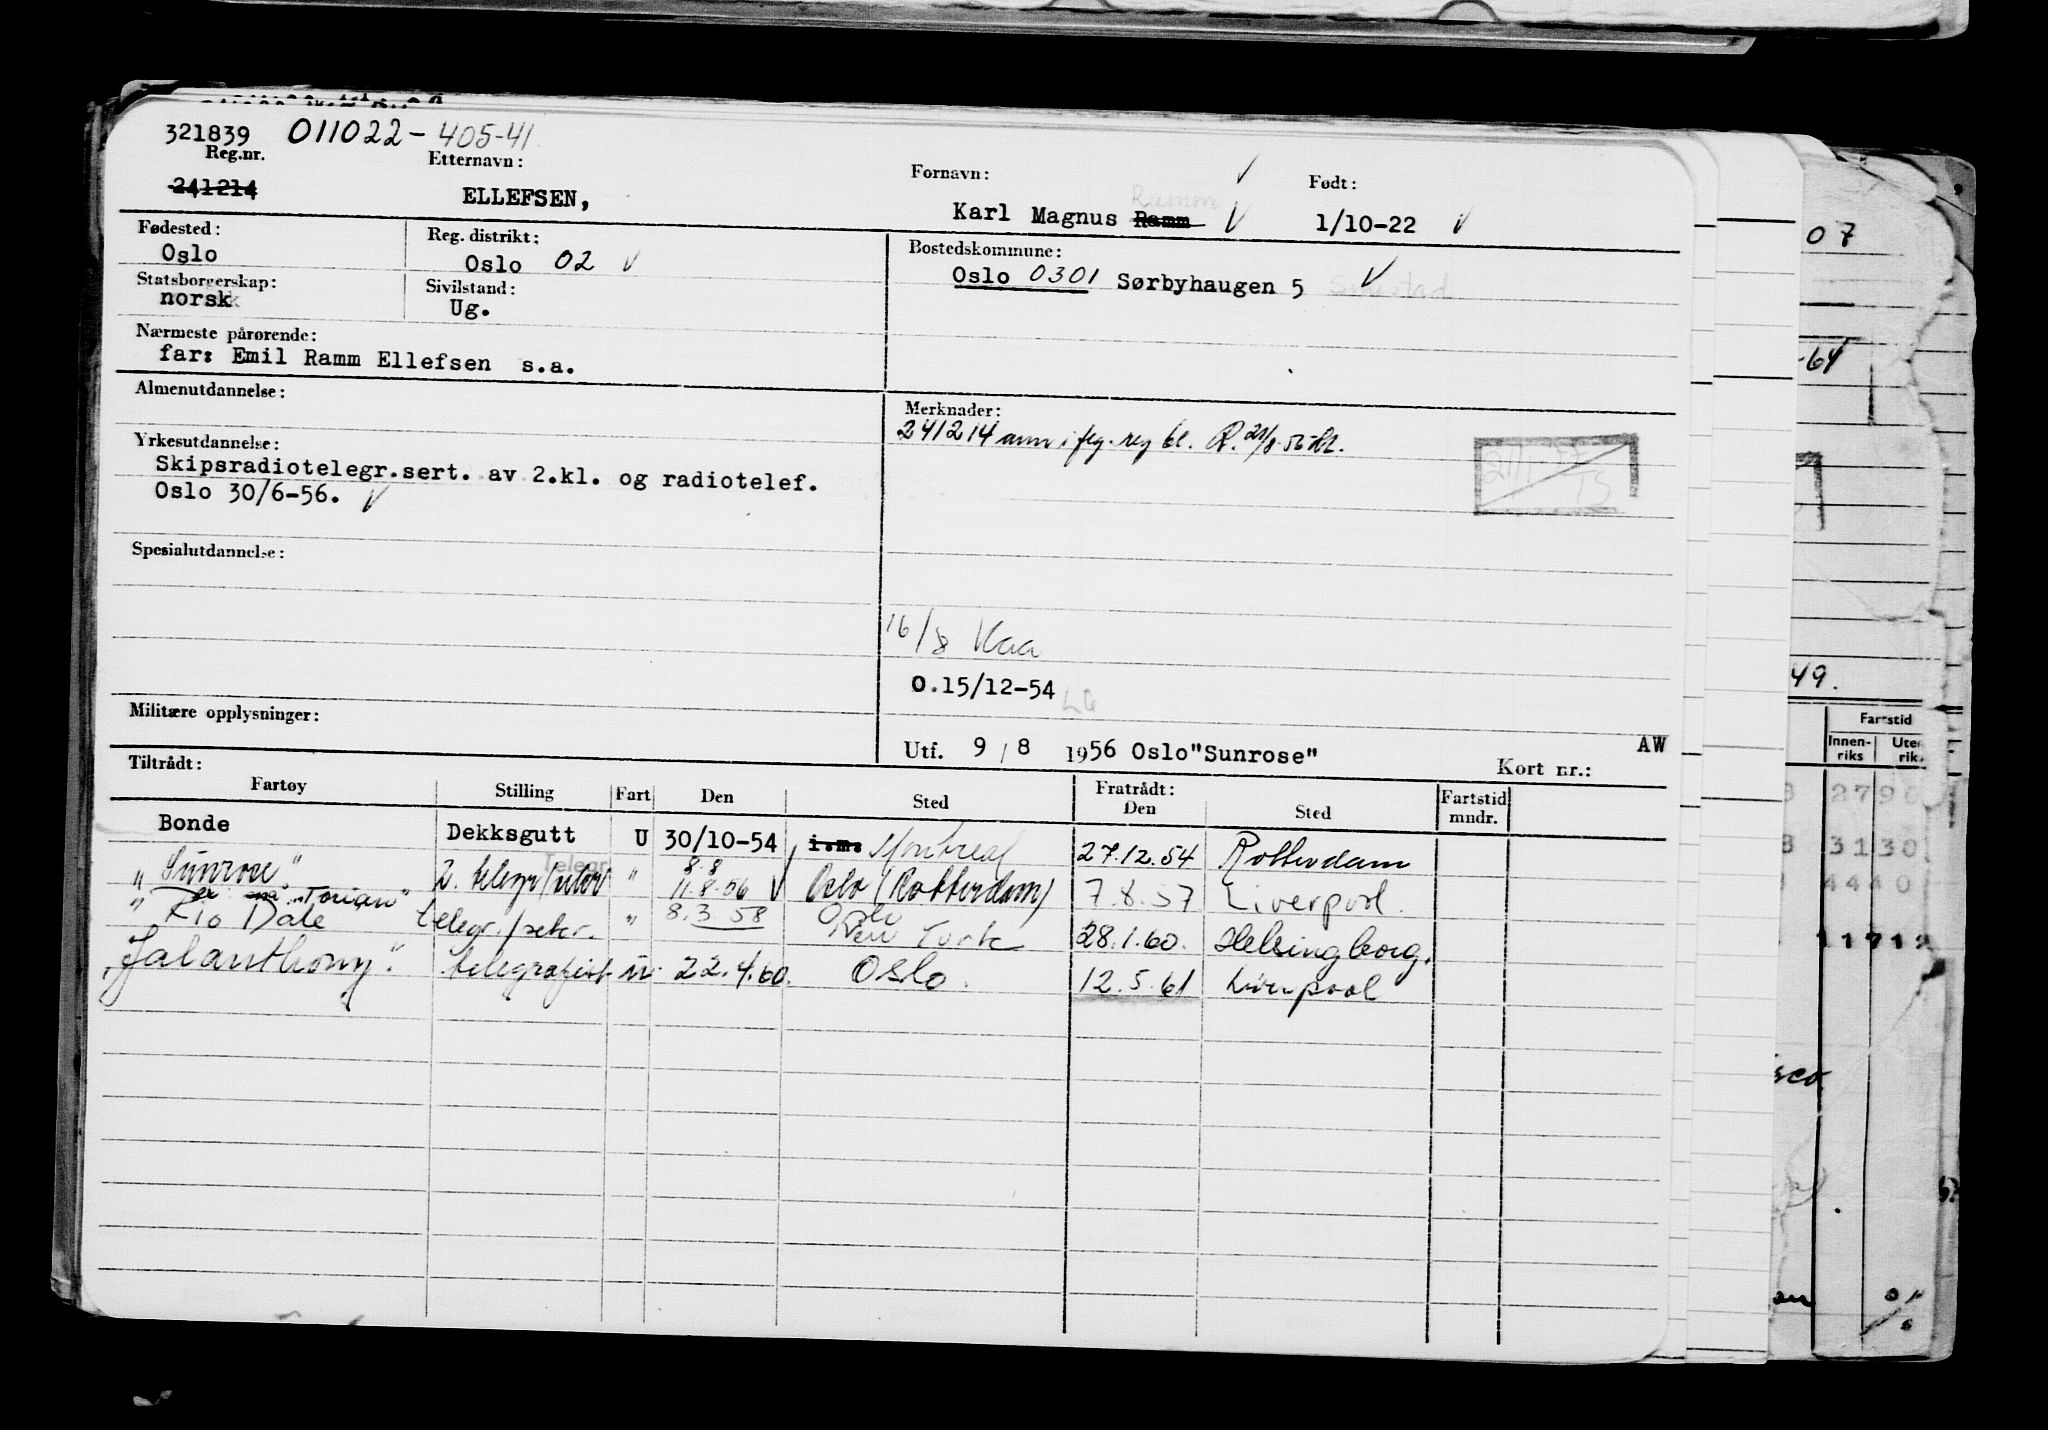 321839 011022-405-41
Reg.nr. Etternavn: Fornavn: Født:
241214 ELLEFSEN, Karl Magnus Ramm Ramm 1/10-22
Fødested: Reg. distrikt: Bostedskommune:
Oslo Oslo 02 Oslo 0301 Sørbyhaugen 5
Statsborgerskap: Sivilstand:
norsk Ug.
Nærmeste pårørende:
far: Emil Ramm Ellefsen s.a.
Almenutdannelse: Merknader:
241214 ann i flg. reg bl.
Yrkesutdannelse:
Skipsradiotelegr.sert. av 2.kl. og radiotelef.
Oslo 30/6-56.
Spesialutdannelse:
16/8
O.15/12-54
Militære opplysninger:
Utf. 9/8 1956 Oslo "Sunrose" AW
Tiltrådt: Kort nr.:
Fartøy Stilling Fart Den Sted Fratrådt: Den Sted Fartstid mndr.
Bonde Dekksgutt U 30/10-54 i.m. Montreal 27.12.54 Rotterdam
"Sunrose" 2. telegr " 8.8 11.8.56 Oslo (Rotterdam) 7.8.57 Liverpool.
"Rio Dale Torian" telegr./sekr. " 8.3.58 Oslo New York 28.1.60. Helsingborg.
"Jalanthony". telegrafist u. 22.4.60. Oslo. 12.5.61 Liverpool
07
-64
49.
Fartstid
Innenriks